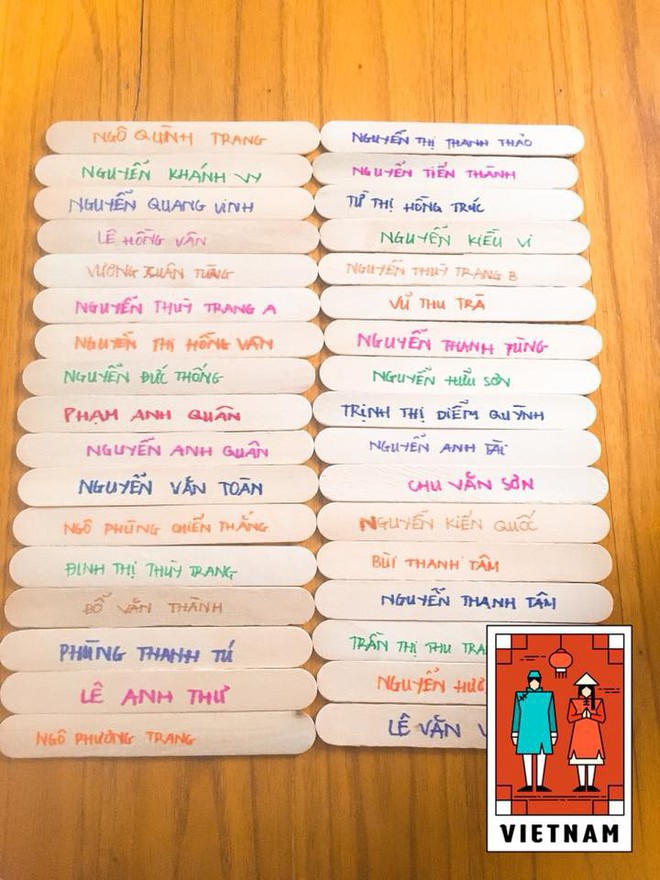 NGÔ QUỲNH TRANG
NGUYỄN KHÁNH VY
NGUYỄN QUANG VINH
LÊ HỒNG VÂN
VƯƠNG XUÂN TÙNG
NGUYỄN THUỲ TRANG A
NGUYỄN THỊ HỒNG VÂN
NGUYỄN ĐỨC THỐNG
PHẠM ANH QUÂN
NGUYỄN ANH QUÂN
NGUYỄN VĂN TOÀN
NGÔ PHÙNG CHIẾN THẮNG
ĐINH THỊ THUỲ TRANG
ĐỖ VĂN THÀNH
PHÙNG THANH TÚ
LÊ ANH THƯ
NGÔ PHƯƠNG TRANG
NGUYỄN THỊ THANH THẢO
NGUYỄN TIẾN THÀNH
TỪ THỊ HỒNG TRÚC
NGUYỄN KIỀU VI
NGUYỄN THUỲ TRANG B
VŨ THU TRÀ
NGUYỄN THANH TÙNG
NGUYỄN HỮU SƠN
TRỊNH THỊ DIỄM QUỲNH
NGUYỄN ANH TÀI
CHU VĂN SƠN
NGUYỄN KIẾN QUỐC
BÙI THANH TÂM
NGUYỄN THANH TÂM
TRẦN THỊ THU
NGUYỄN
LÊ VĂN
VIETNAM